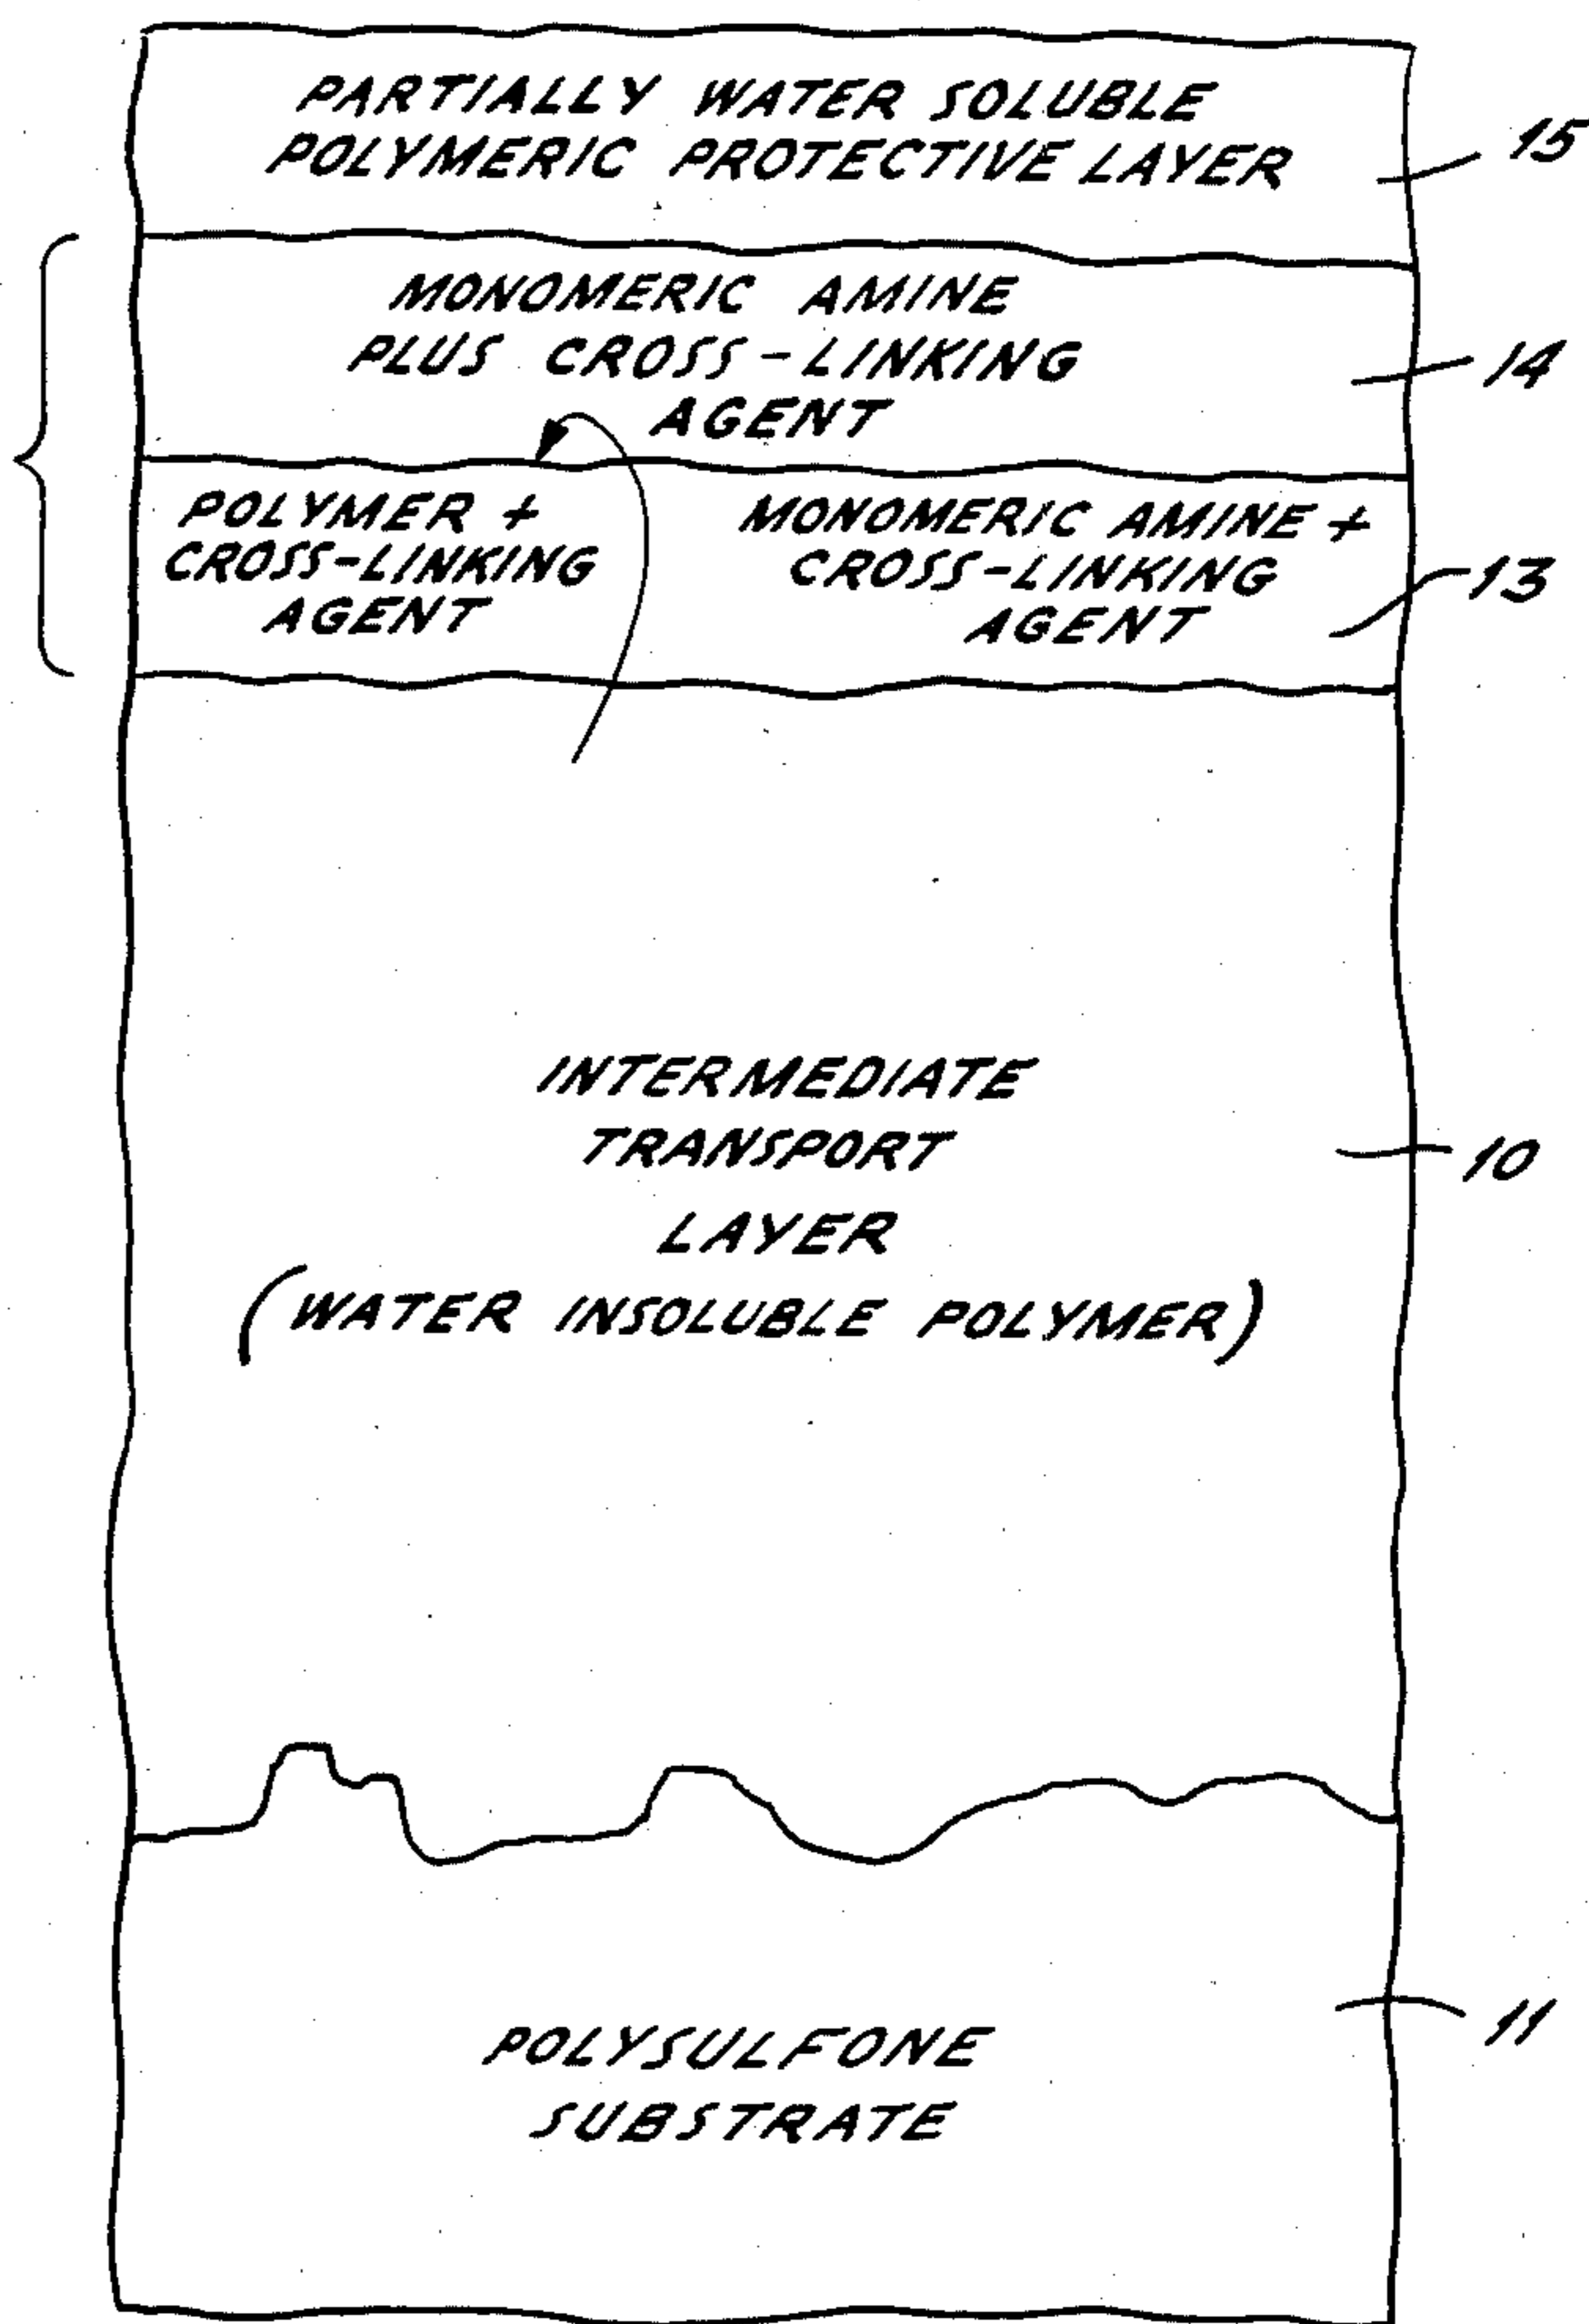 PARTIALLY WATER SOLUBLE
POLYMERIC PROTECTIVE LAYER
15
MONOMERIC AMINE
PLUS CROSS-LINKING
AGENT
14
POLYMER +
CROSS-LINKING
AGENT
MONOMERIC AMINE +
CROSS-LINKING
AGENT
13
INTERMEDIATE
TRANSPORT
LAYER
(WATER INSOLUBLE POLYMER)
10
POLYSULFONE
SUBSTRATE
11